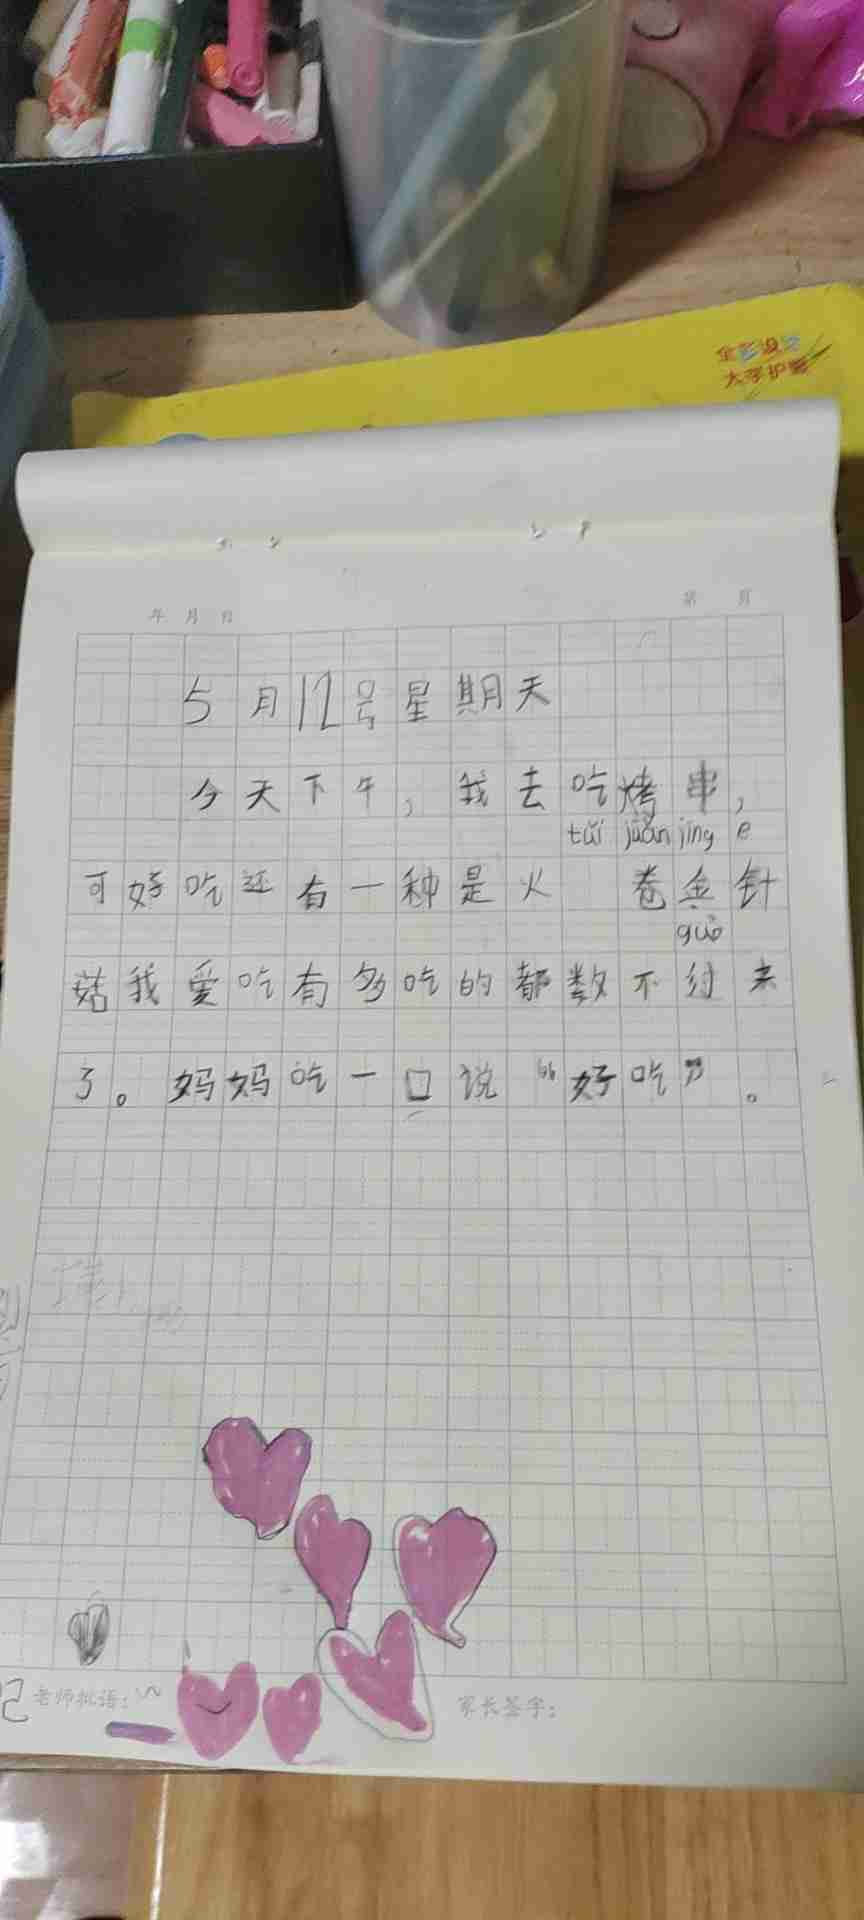 全彩
大字护眼
年 月 日
第 页
5月12号星期天
今天下午，我去吃烤串，
tuǐ juǎn jīng e
可好吃还有一种是火 卷金针
guò
菇我爱吃有多吃的都数不过来
了。妈妈吃一口说“好吃”。
老师批语：
家长签字：